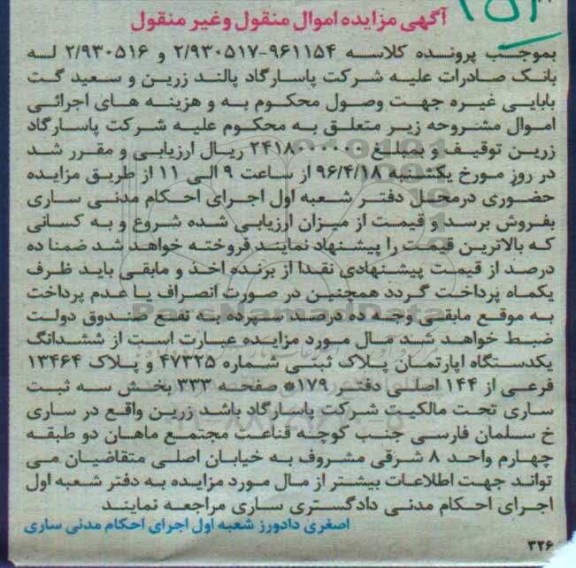 آگهی مزایده اموال منقول وغیر منقول
بموجب پرونده کلاسه ۹۶۱۱۵۴-۲/۹۳۰۵۱۷ و ۲/۹۳۰۵۱۶ له
بانک صادرات علیه شرکت پاسارگاد پالند زرین و سعید گت
بابایی غیره جهت وصول محکوم به و هزینه های اجرائی
اموال مشروحه زیر متعلق به محکوم علیه شرکت پاسارگاد
زرین توقیف و بمبلغ ۲۴۱۸۰۰۰۰۰۰ ریال ارزیابی و مقرر شد
در روز مورخ یکشنبه ۹۶/۴/۱۸ از ساعت ۹ الی ۱۱ از طریق مزایده
حضوری درمحل دفتر شعبه اول اجرای احکام مدنی ساری
بفروش برسد و قیمت از میزان ارزیابی شده شروع و به کسانی
که بالاترین قیمت را پیشنهاد نمایند فروخته خواهد شد ضمنا ده
درصد از قیمت پیشنهادی نقدا از برنده اخذ و مابقی باید ظرف
یکماه پرداخت گردد همچنین در صورت انصراف یا عدم پرداخت
به موقع مابقی وجه ده درصد سپرده به نفع صندوق دولت
ضبط خواهد شد مال مورد مزایده عبارت است از ششدانگ
یکدستگاه اپارتمان پلاک ثبتی شماره ۴۷۳۲۵ و پلاک ۱۳۴۶۴
فرعی از ۱۴۴ اصلی دفتر ۱۷۹* صفحه ۳۳۳ بخش سه ثبت
ساری تحت مالکیت شرکت پاسارگاد باشد زرین واقع در ساری
خ سلمان فارسی جنب کوچه قناعت مجتمع ماهان دو طبقه
چهارم واحد ۸ شرقی مشروف به خیابان اصلی متقاضیان می
تواند جهت اطلاعات بیشتر از مال مورد مزایده به دفتر شعبه اول
اجرای احکام مدنی دادگستری ساری مراجعه نمایند
اصغری دادورز شعبه اول اجرای احکام مدنی ساری
۳۲۶